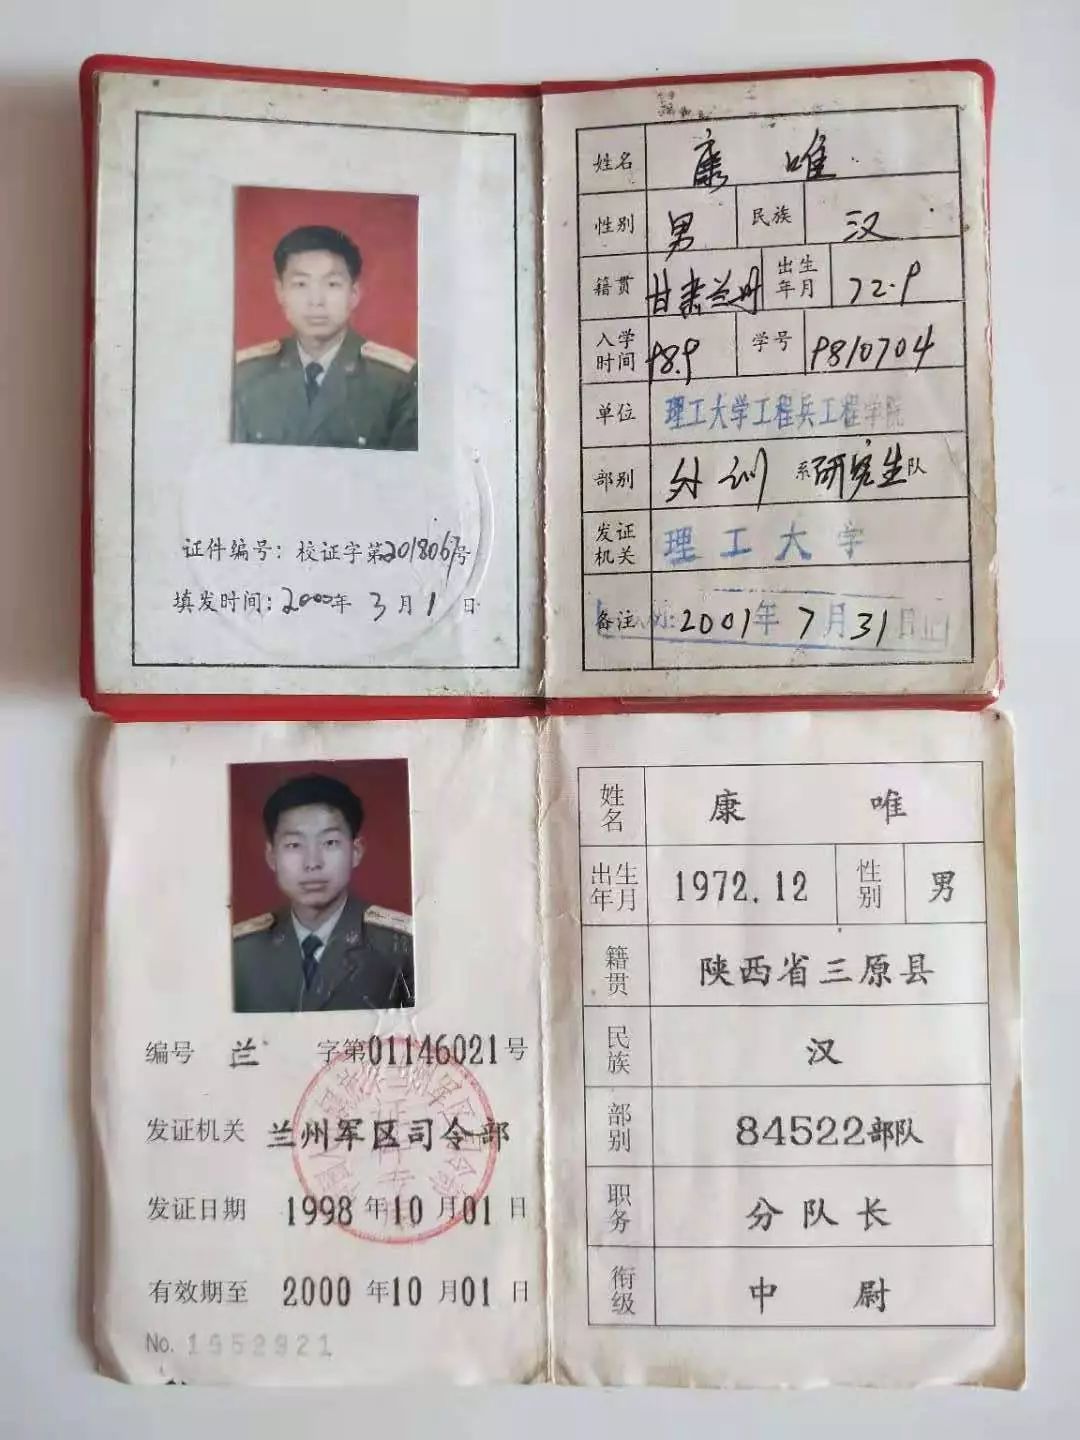 证件编号：校证字第2018067号
填发时间：2000年3月1日
姓名 康 唯
性别 男 民族 汉
籍贯 甘肃兰州 出生年月 72.9
入学时间 98.9 学号 9810704
单位 理工大学工程兵工程学院
部别 外训 系 研究生 队
发证机关 理工大学
备注 2001年7月31日
编号 兰 字第01146021号
发证机关 兰州军区司令部
发证日期 1998年10月01日
有效期至 2000年10月01日
No. 1952921
姓名 康 唯
出生年月 1972.12 性别 男
籍贯 陕西省三原县
民族 汉
部别 84522部队
职务 分队长
衔级 中 尉